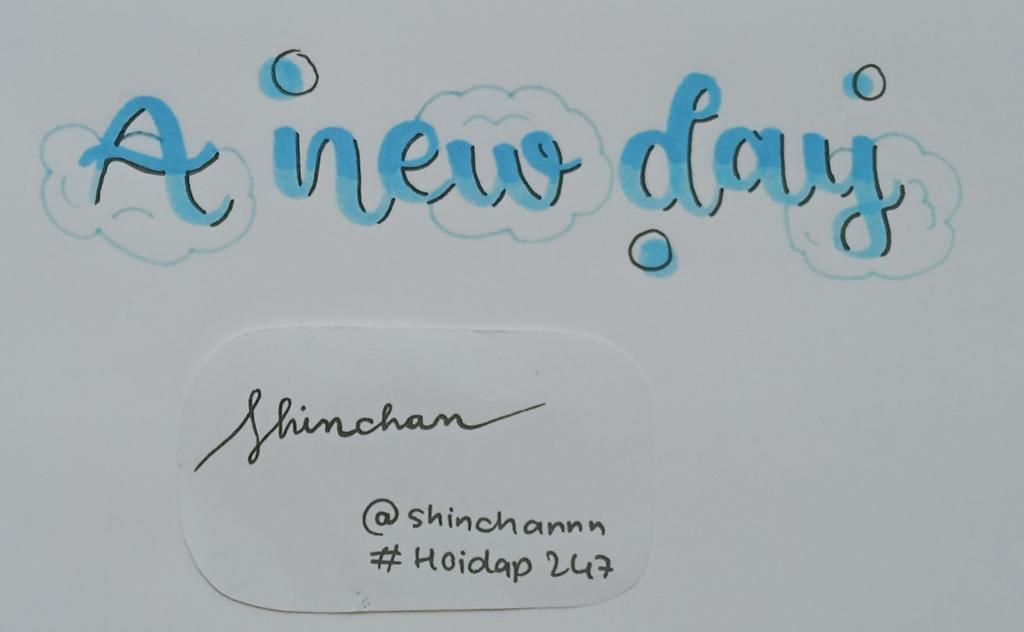 A new day
Shinchan
@shinchannn
#Hoidap247